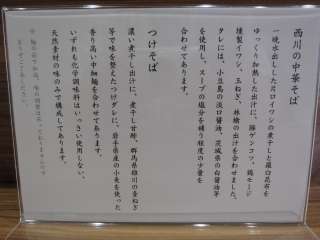 西川の中華そば
一晩水出しした片口イワシの煮干しと羅臼昆布を
ゆっくり加熱した出汁に、豚ゲンコツ、鶏モミジ
燻製イワシ、玉ねぎ、林檎の出汁を合わせました。
タレには、小豆島の淡口醤油、茨城県の白醤油等
を使用し、スープの塩分を補う程度の少量を
合わせてあります。
つけそば
濃い煮干し出汁に、煮干し甘酢、群馬県
等で味を整えたつけダレに、岩手県産の小麦を使った
香り高い中細麺を合わせてあります。
いずれも化学調味料はいっさい使用しない、
天然素材の味のみで構成してあります。